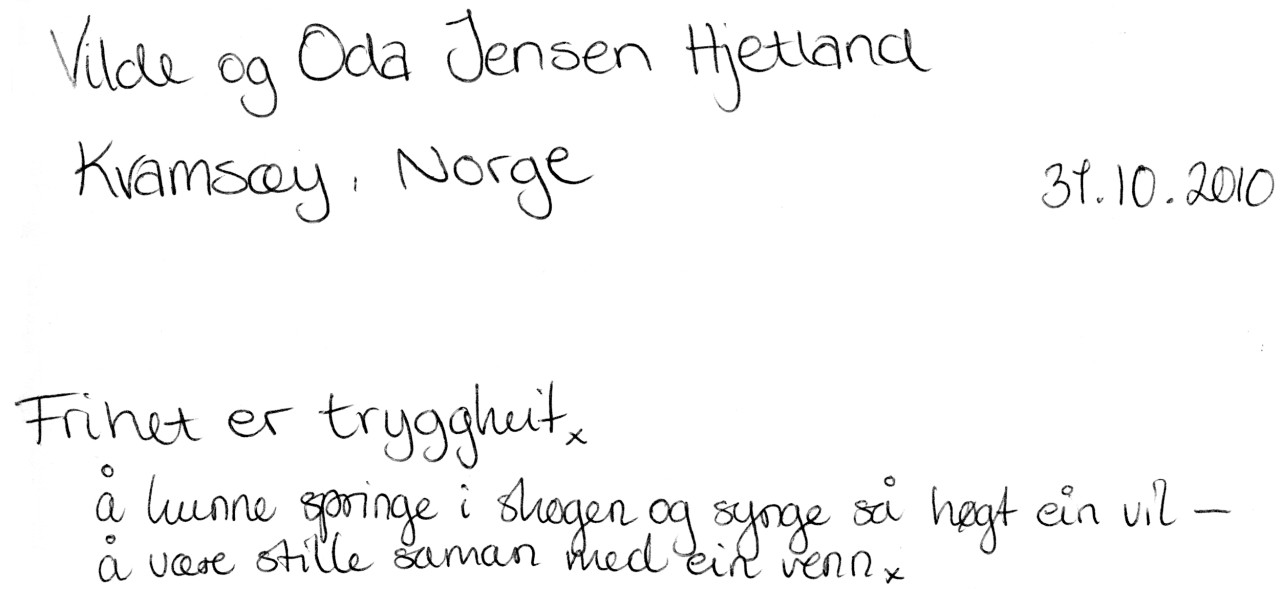 Vilde og Oda Jensen Hjetland
Kvamsøy, Norge
31.10.2010
Frihet er tryggheit x
å kunne springe i skogen og synge så høgt ein vil –
å være stille saman med ein venn x